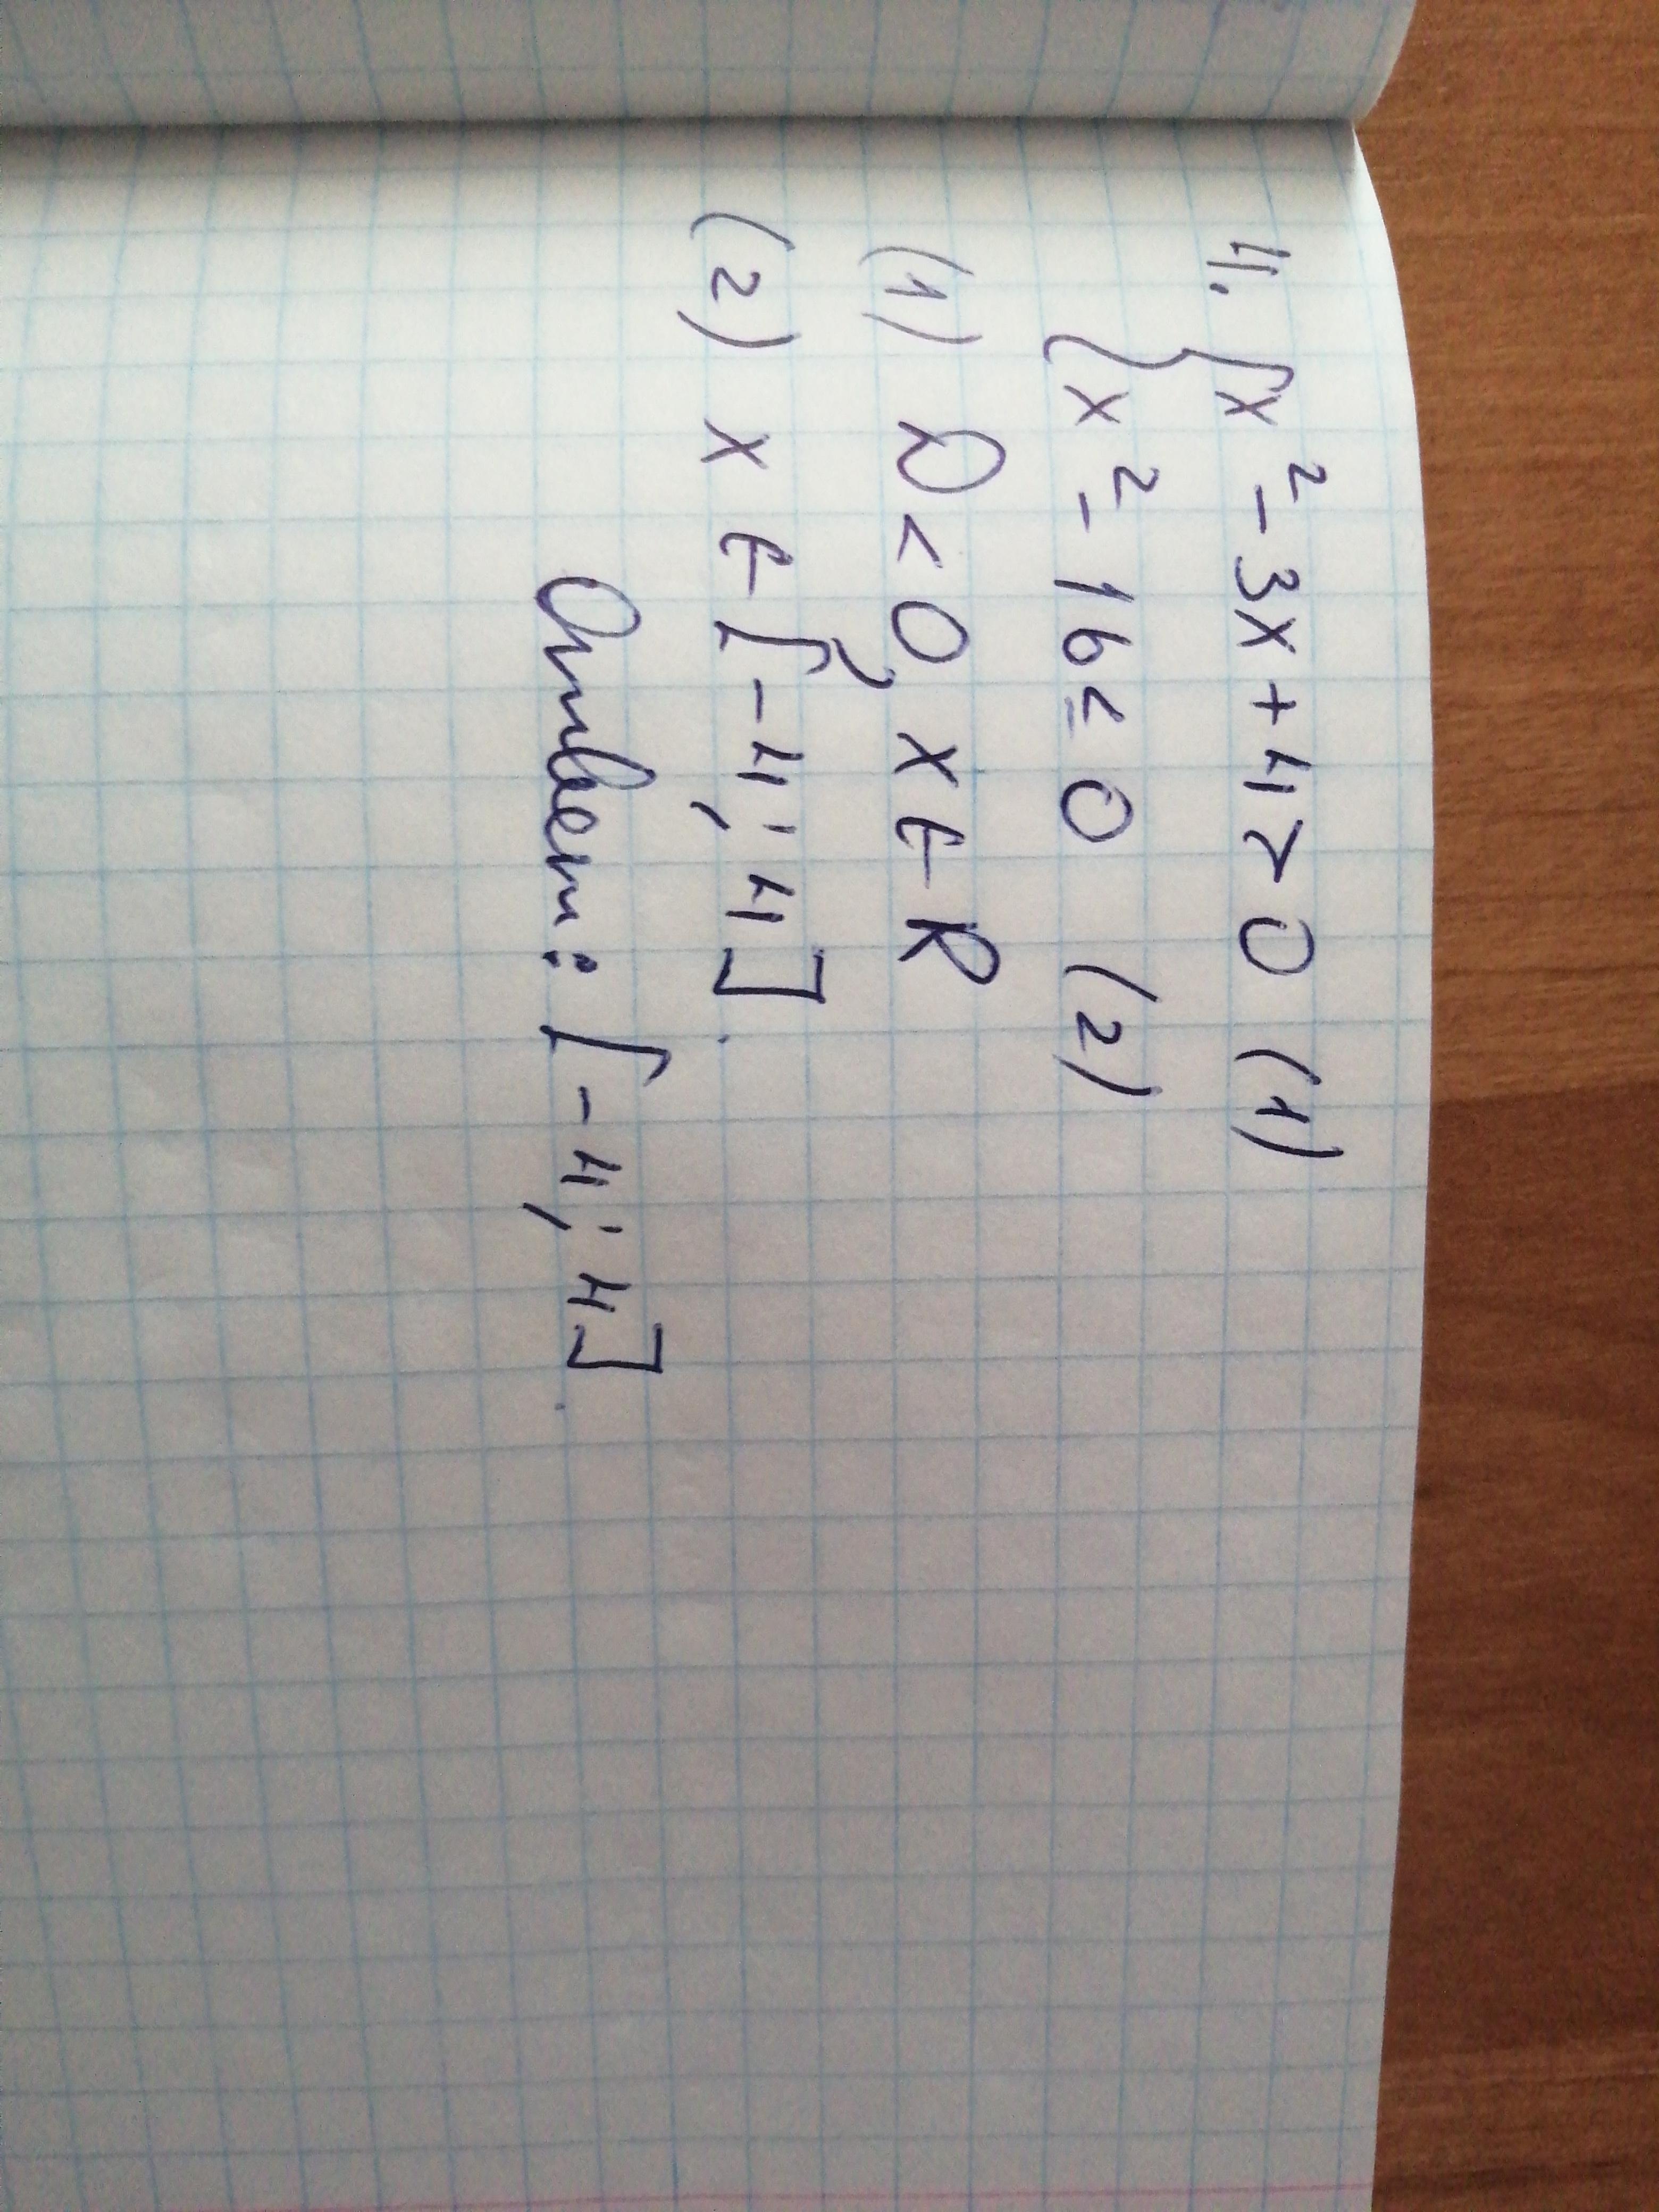 4. { x² - 3x + 4 > 0 (1)
{ x² - 16 ≤ 0 (2)
(1) D < 0, x ∈ R
(2) x ∈ [-4; 4].
Ответ: [-4; 4].